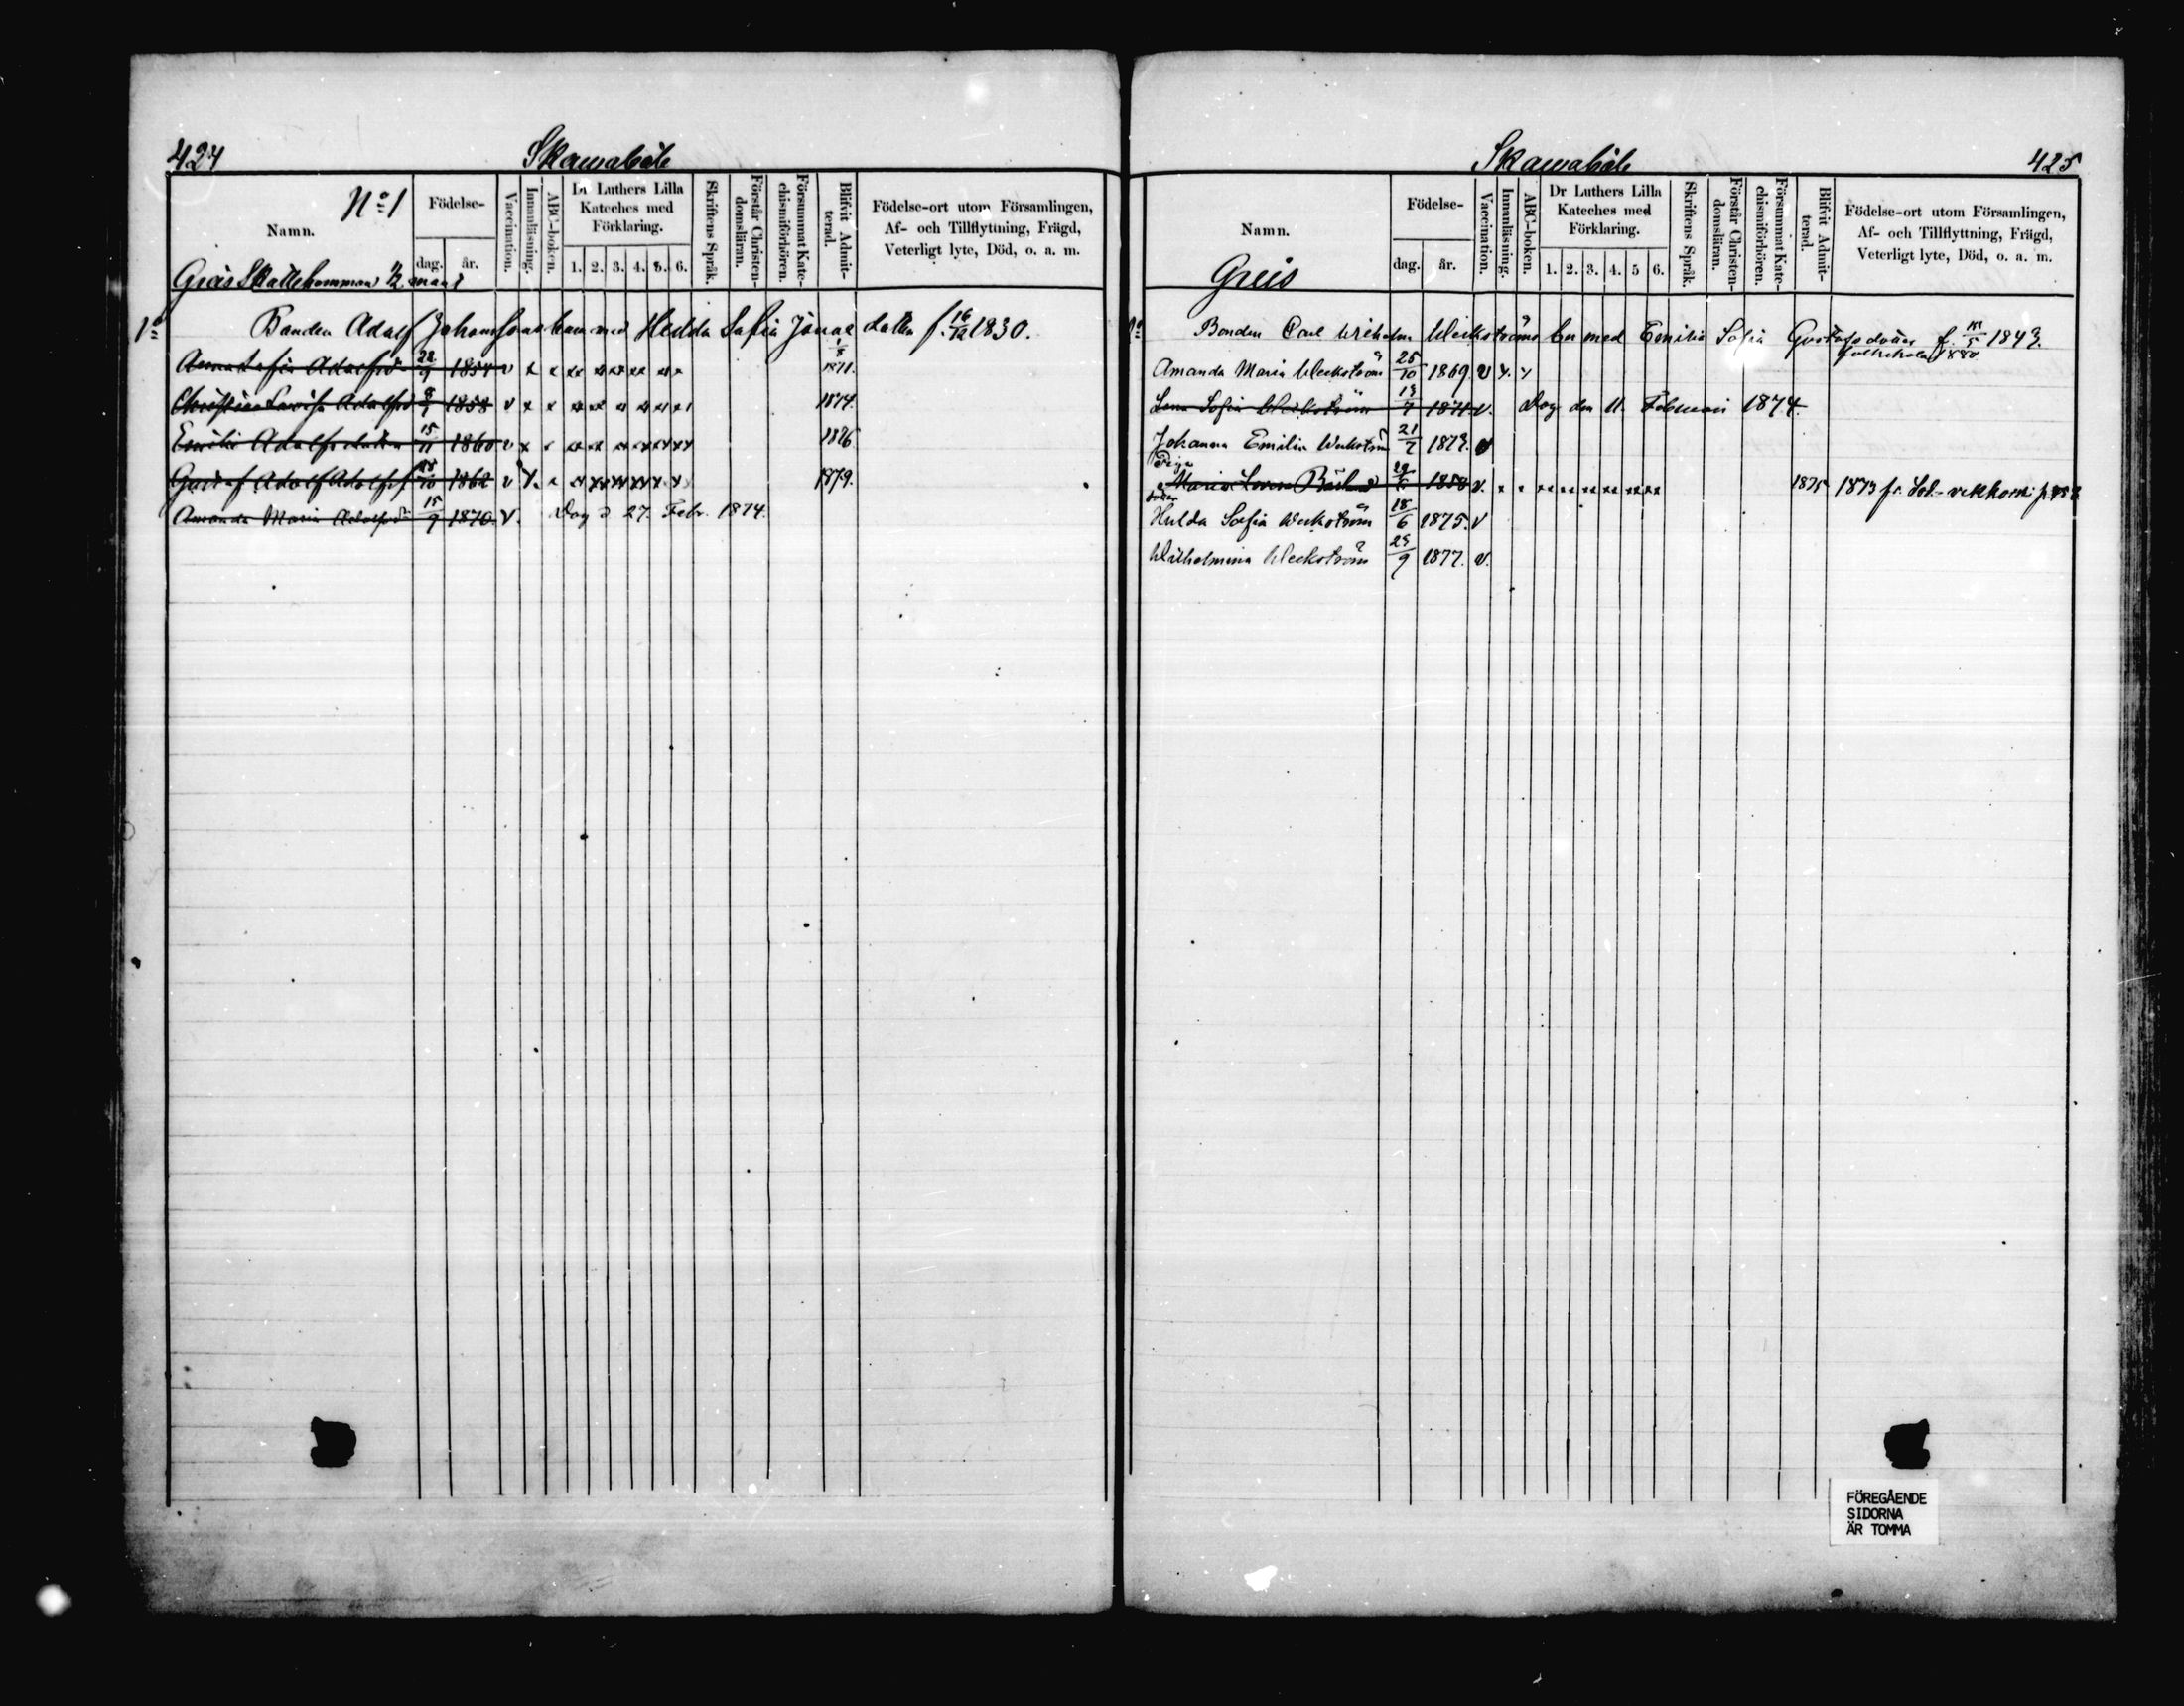 424 Skamaböle
No 1
Namn. Födelse- dag. år. Vaccination. Innanläsning. ABC-boken. Dr Luthers Lilla Kateches med Förklaring. 1. 2. 3. 4. 5. 6. Skriftens Språk. Förstår Christendomsläran. Försummat Katechismiförhören. Blifvit Admitterad. Födelse-ort utom Församlingen, Af- och Tillflyttning, Frägd, Veterligt lyte, Död, o. a. m.
Greis Skattehemman 1/2 mant
1o Bonden Adolf Johanssons barn med Hedda Sofia Jonaedotter f. 16/12 1830.
Anna Sofia Adolfsdr 22/9 1854 v x x xx xx xx xx 1/5 1871.
Christina Lovisa Adolfsd 8/1 1858 v x x 1874.
Emilia Adolfsdotter 15/11 1860 v x x 1876
Gustaf Adolf Adolfsf 1862 v x x 1879.
Amanda Maria Adolfsd 15/9 1870 v. Dog d 27. Febr. 1874.
Skamaböle 425
Namn. Födelse- dag. år. Vaccination. Innanläsning. ABC-boken. Dr Luthers Lilla Kateches med Förklaring. 1. 2. 3. 4. 5 6. Skriftens Språk. Förstår Christendomsläran. Försummat Katechismiförhören. Blifvit Admitterad. Födelse-ort utom Församlingen, Af- och Tillflyttning, Frägd, Veterligt lyte, Död, o. a. m.
Greis
1o Bonden Carl Wilhelm Weckströms bn med Emilia Sofia Gustafsdotter f. 1843.
Amanda Maria Weckström 25/10 1869. v x. x folkskola 1880
Lena Sofia Weckström 19/7 1871 v. Dog den 11. Februari 1874.
Johanna Emilia Weckström 21/7 1873. v
Piga
Maria Lovisa 1858 v. x x 1875 1873 fr.
Hulda Sofia Weckström 18/6 1875. v
Wilhelmina Weckström 29/9 1877. v.
FÖREGÅENDE
SIDORNA
ÄR TOMMA